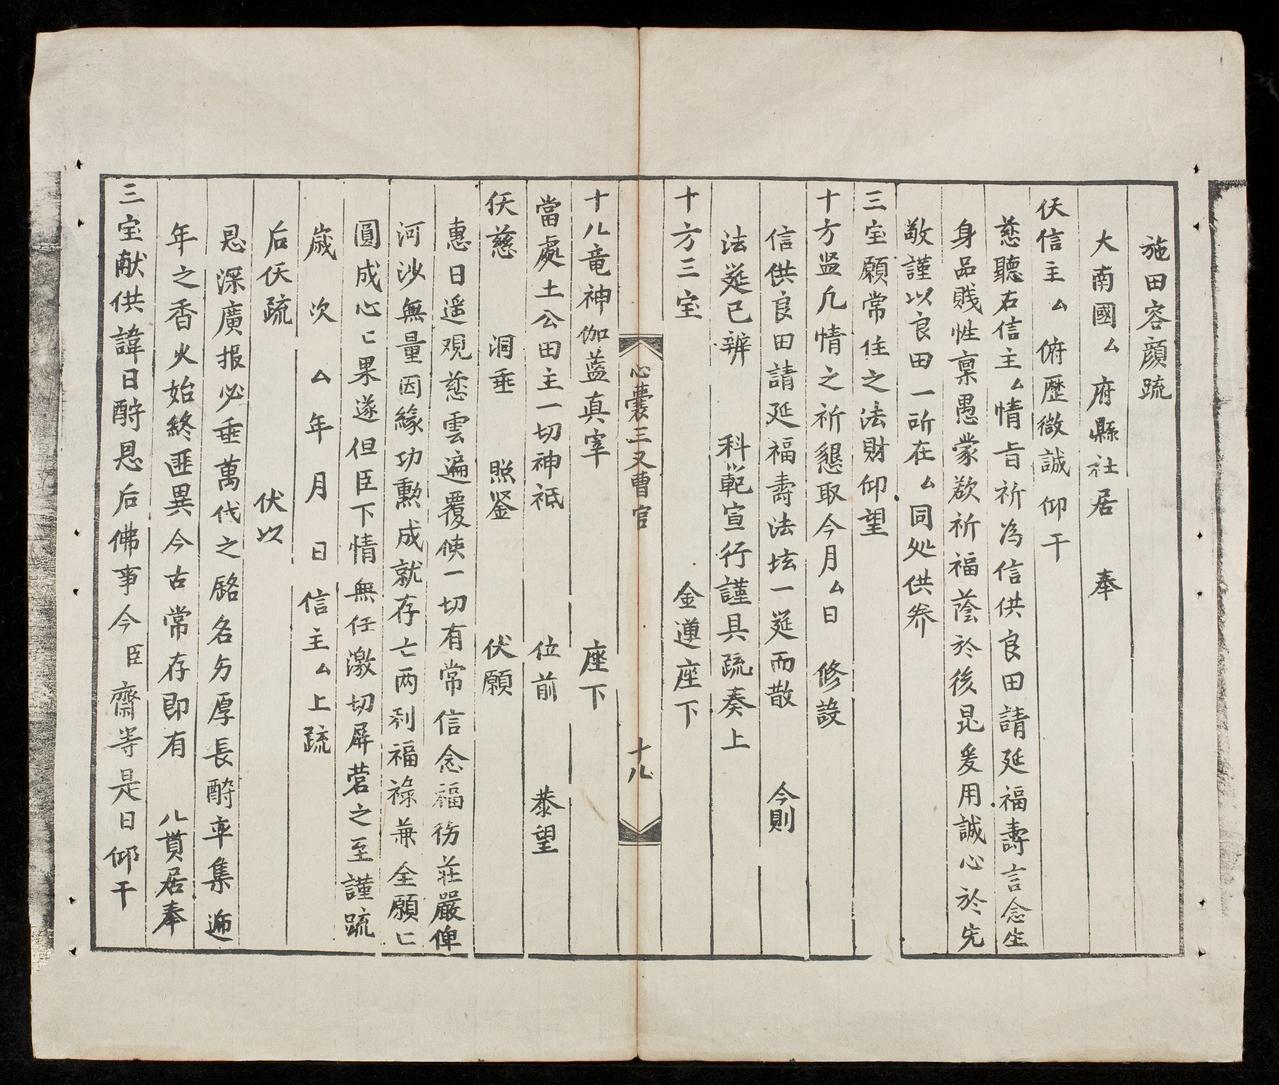 施田容顔疏
大南國厶府縣社居 奉
仸信主厶 俯歴微誠 仰干
慈聽右信主厶情旨祈為信供良田請延福壽言念生
身品賤性禀愚蒙欲祈福蔭於後昆爰用誠心於先
敬謹以良田一所在厶同处供养
三宝願常住之法財仰望
十方监凡情之祈懇取今月厶日 修設
信供良田請延福壽法坛一筵而散 今則
法筵已辨 科範宣行謹具疏奏上
十方三宝 金蓮座下
心囊三又曹官 十八
十八竜神伽蓝真宰 座下
當處土公田主一切神祗 位前 恭望
仸慈 洞垂 照鉴 伏願
惠日遥观慈雲遍覆使一切有常信念福彷莊嚴俾
河沙無量因緣功勲成就存亡両利福禄兼全願亡
圓成心亡果遂但臣下情無任激切屏营之至謹疏
歳次厶年月日 信主厶上疏
后仸疏 伏以
恩深廣报必垂萬代之銘名为厚長酧率集 迊
年之香火始終匪異今古常存即有 八貫居奉
三宝献供諱日酧恩后佛事今臣齋寺是日仰干